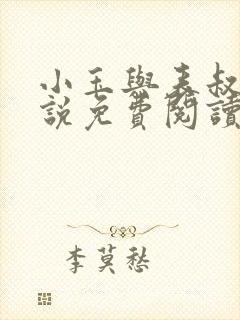 小玉與表叔
說免費閱讀
李莫愁